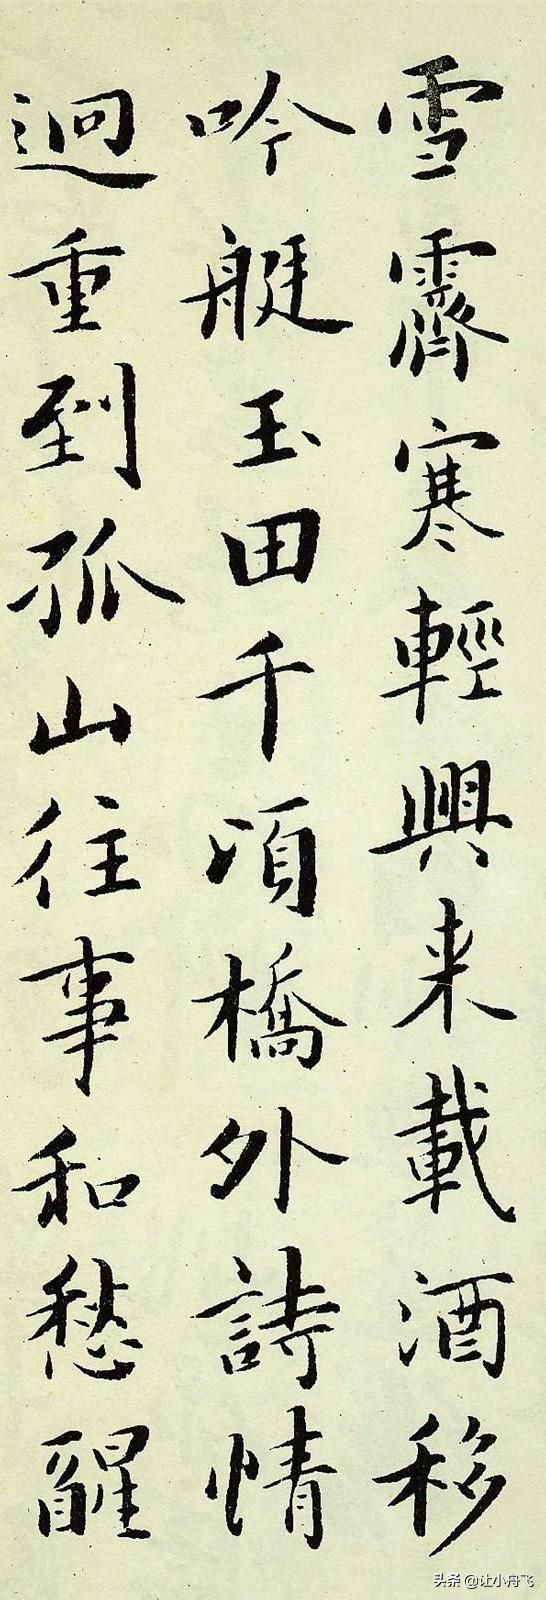 雪霽寒輕興来載酒移
吟艇玉田千頃橋外詩情
迥重到孤山往事和愁醒
头条 @让小舟飞